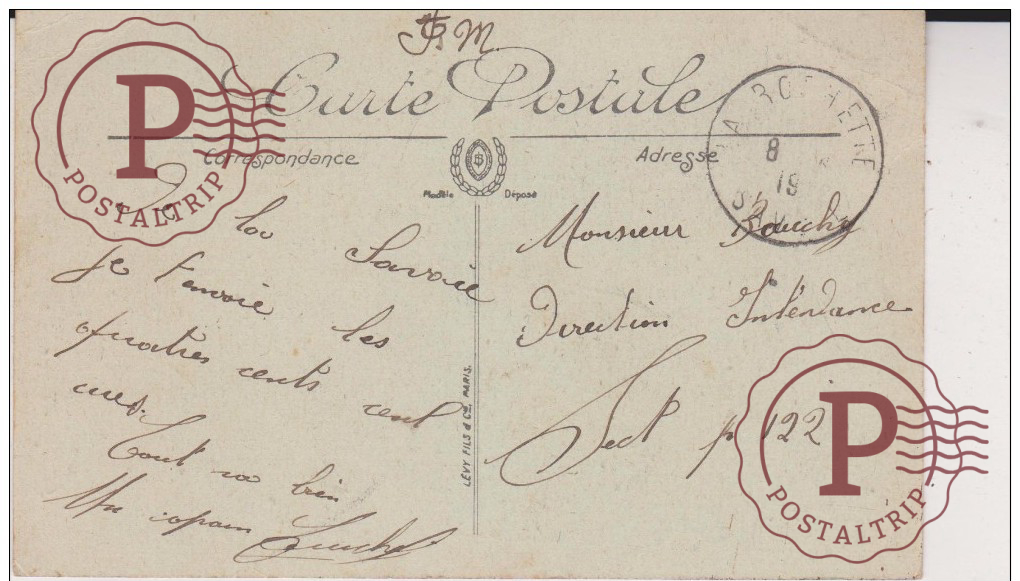 F M
Carte Postale
Correspondance
Adresse
Modèle Déposé
LA ROCHETTE
8
19
LÉVY FILS & Cie. PARIS.
la Savoie
Je t'envoie les
quatres cents cent
Tout va bien
Un copain
Monsieur
Direction Intendance
Sect p 122
P
POSTALTRIP
P
POSTALTRIP